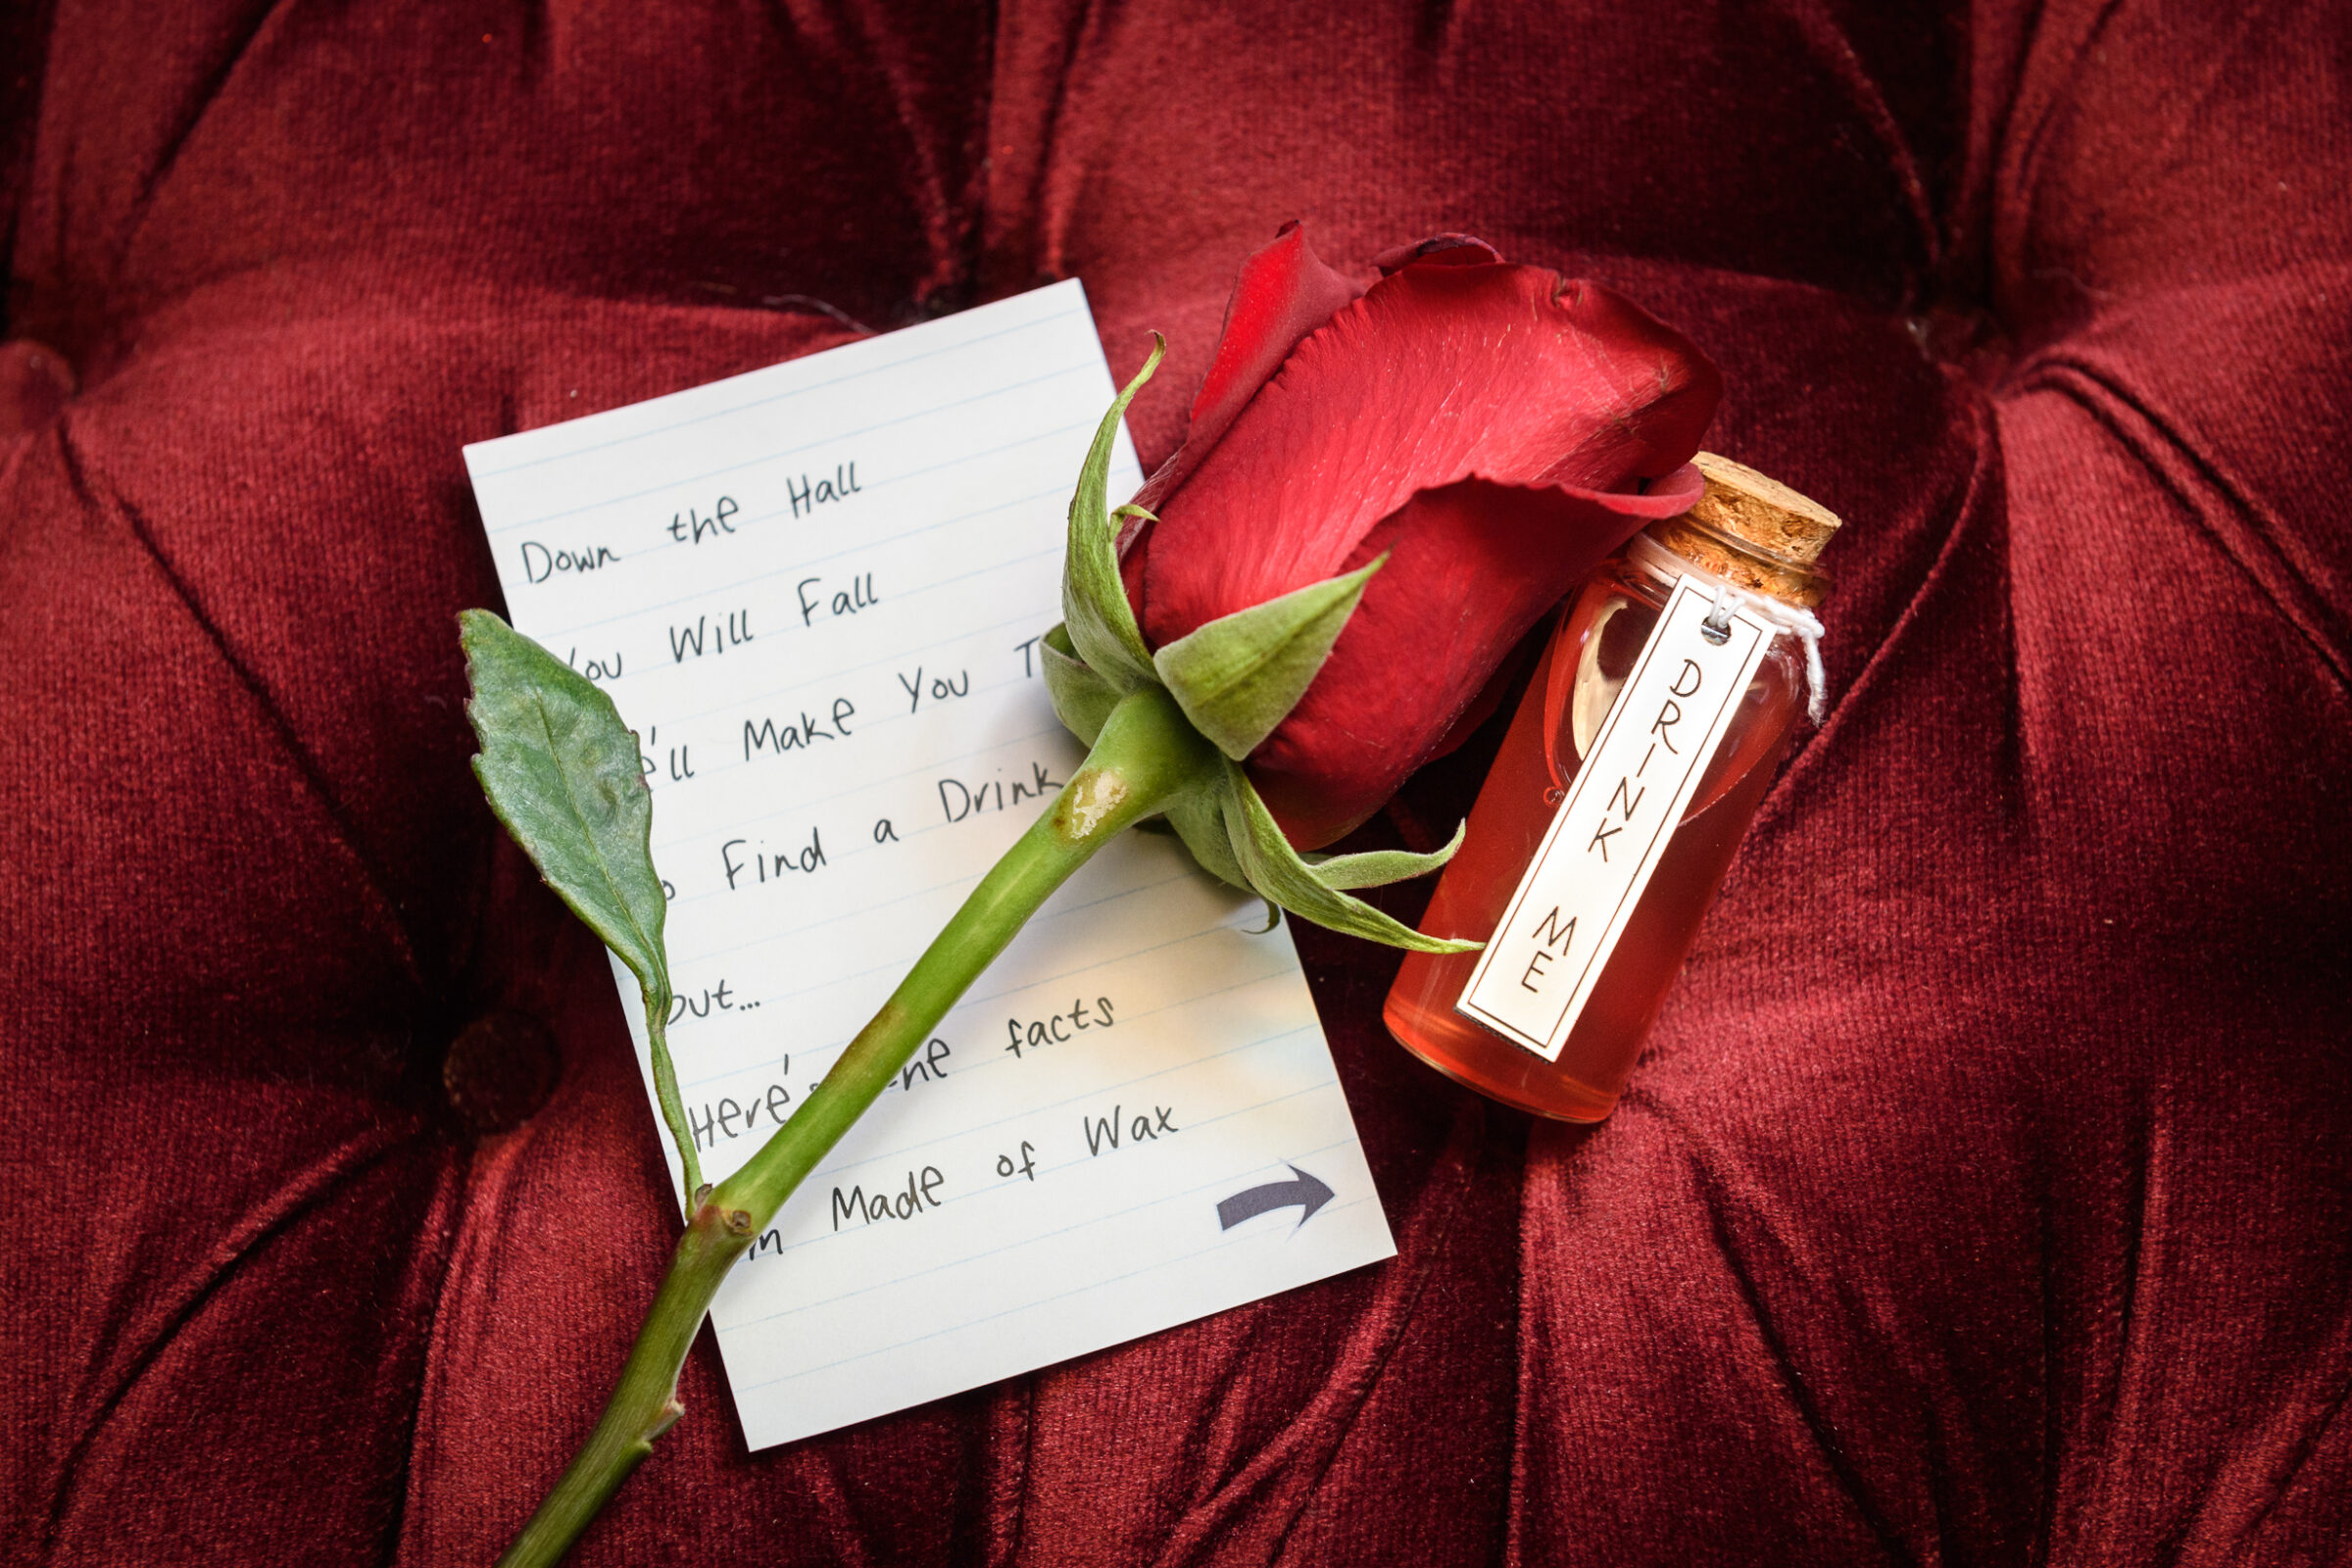 Down the Hall
You Will Fall
Make You
Find a Drink
but...
Here's the facts
Made of Wax
DRINK ME